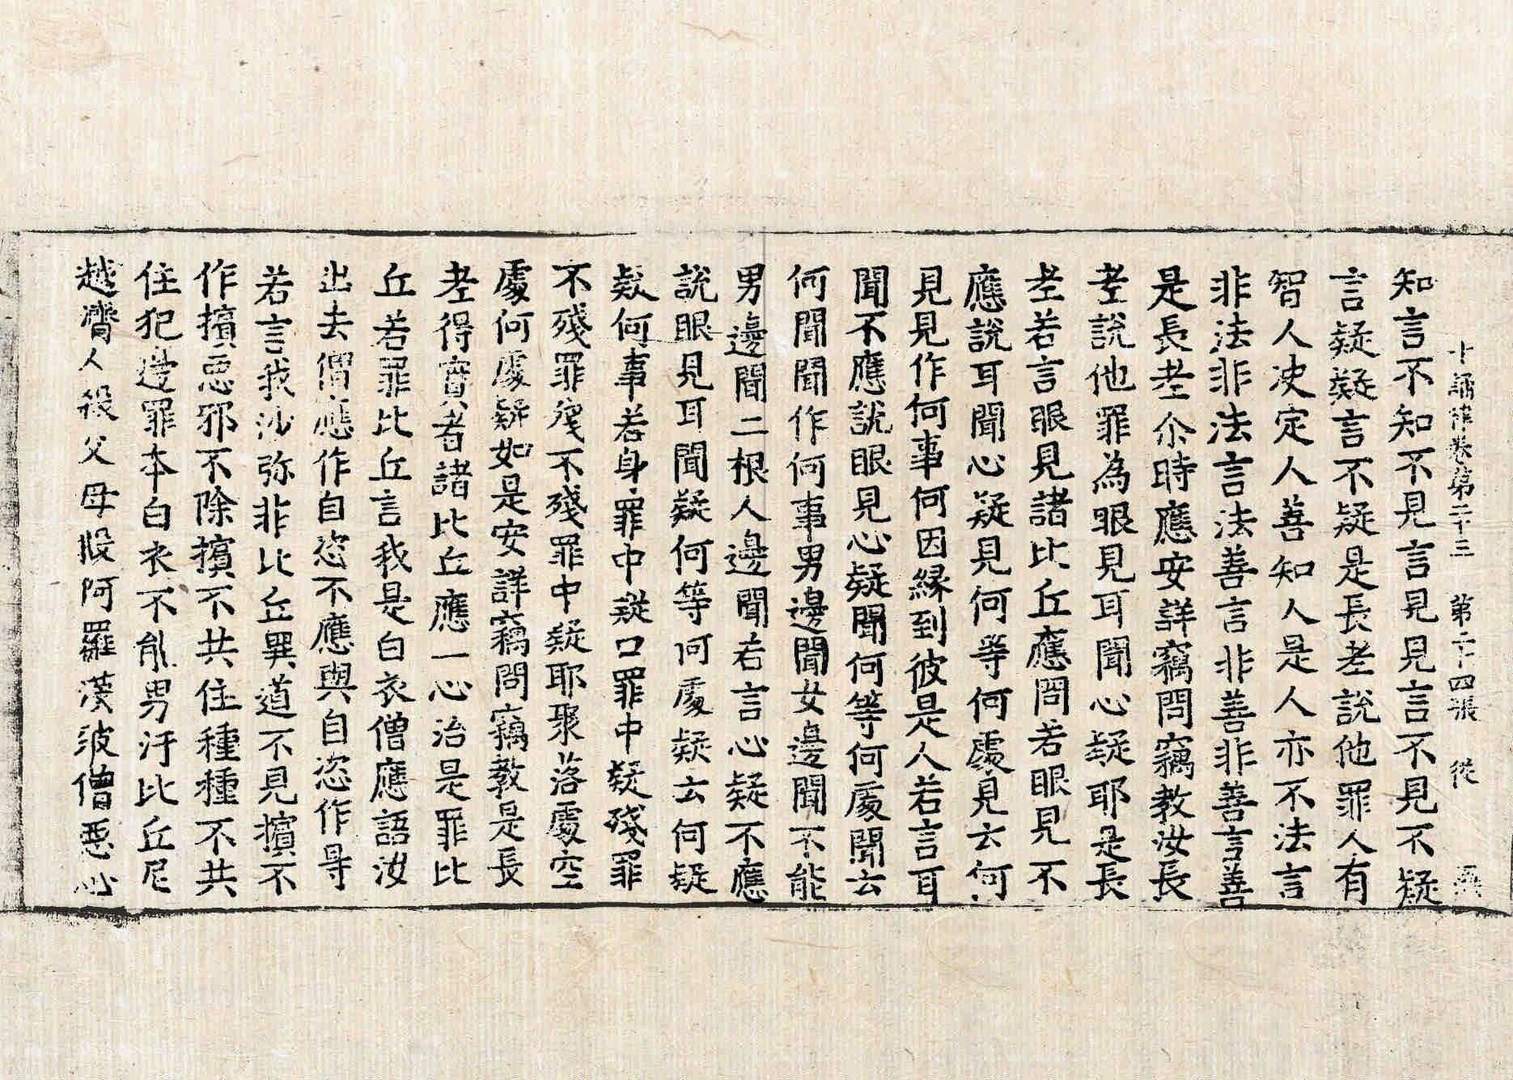 十誦律卷第二十三 第二十四張 從
知言不知不見言見見言不見不疑
言疑疑言不疑是長老說他罪人有
智人决定人善知人是人亦不法言
非法非法言法善言非善非善言善
是長老尒時應安詳竊問竊教汝長
老說他罪為眼見耳聞心疑耶是長
老若言眼見諸比丘應問若眼見不
應說耳聞心疑見何等何處見云何
見見作何事何因縁到彼是人若言耳
聞不應說眼見心疑聞何等何處聞云
何聞聞作何事男邊聞女邊聞不能
男邊聞二根人邊聞若言心疑不應
說眼見耳聞疑何等何處疑云何疑
疑何事若身罪中疑口罪中疑殘罪
不殘罪殘不殘罪中疑耶聚落處空
處何處疑如是安詳竊問竊教是長
老得實者諸比丘應一心治是罪比
丘若罪比丘言我是白衣僧應語汝
出去僧應作自恣不應與自恣作㝵
若言我沙弥非比丘異道不見擯不
作擯惡邪不除擯不共住種種不共
住犯邊罪本白衣不能男汙比丘尼
越濟人殺父母殺阿羅漢破僧惡心